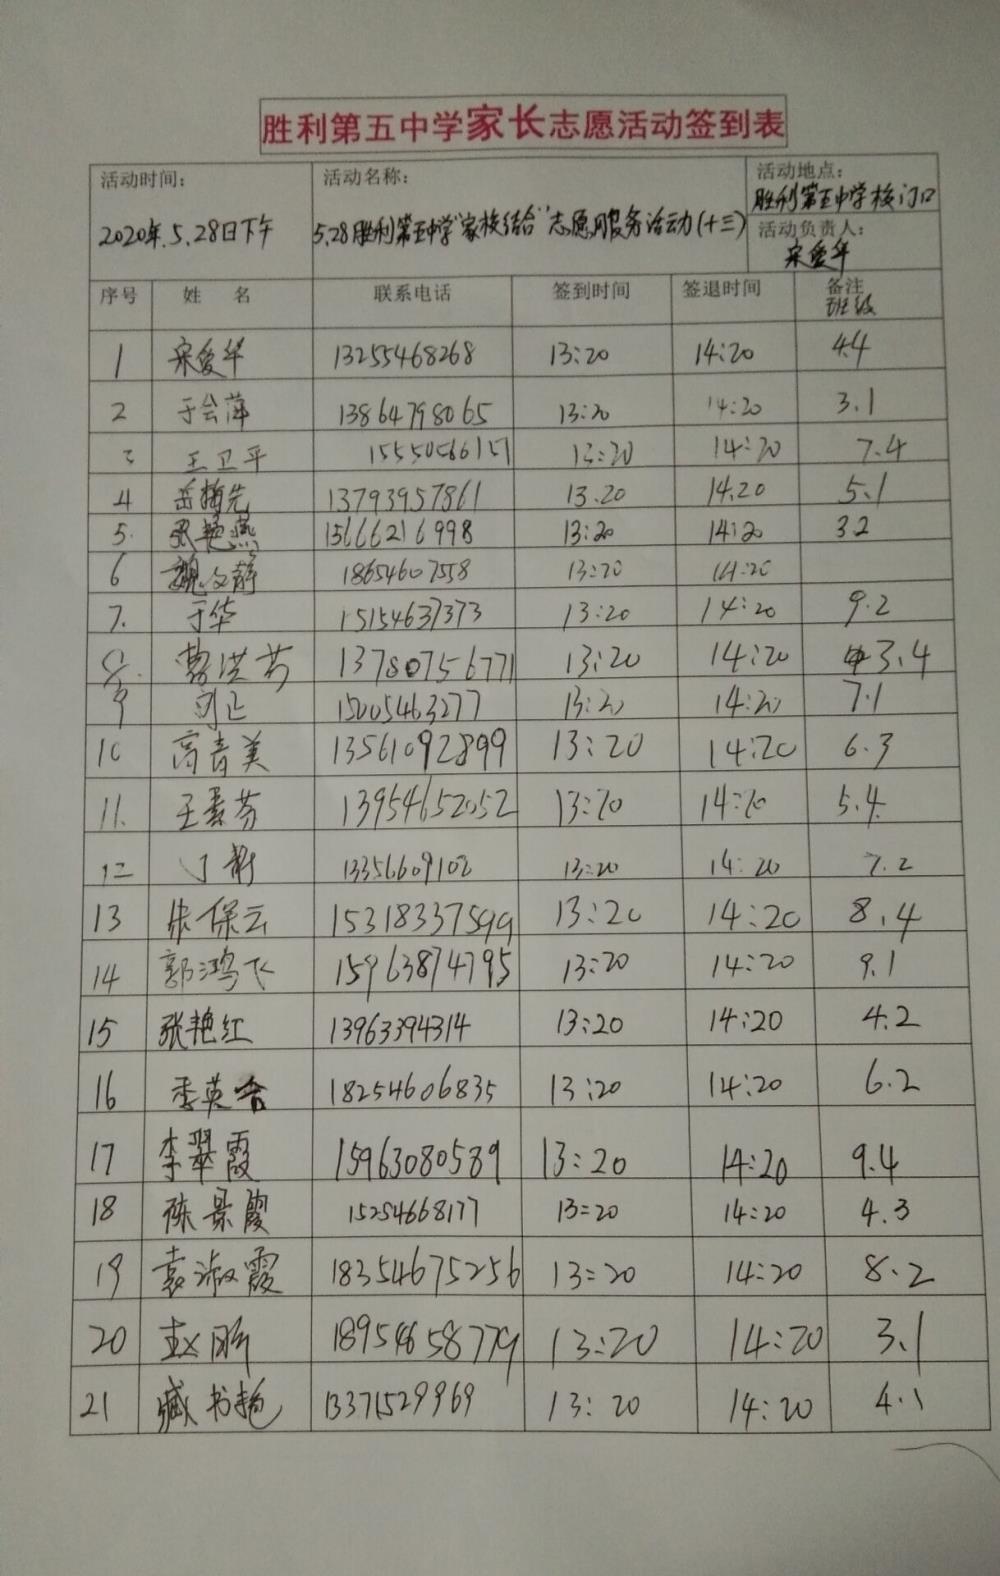 胜利第五中学家长志愿活动签到表
活动时间: 活动名称: 活动地点:
胜利第五中学校门口
2020年.5.28日下午 5.28胜利第五中学"家校结合"志愿服务活动(十三) 活动负责人:
宋爱华
序号 姓名 联系电话 签到时间 签退时间 备注
班级
1 宋爱华 13255468268 13:20 14:20 4.4
2 于会萍 13864798065 13:20 14:20 3.1
3 王卫平 13:20 14:20 7.4
4 岳梅先 13793957861 13.20 14.20 5.1
5. 张艳燕 15666216998 13:20 14:20 3.2
6 魏文静 18654607558 13:20 14:20
7. 于华 15154637373 13:20 14:20 9.2
8. 曹洪芳 13780756771 13:20 14:20 3.4
9 刘正 15005463277 13:20 14:20 7.1
10 高青美 13561092899 13:20 14:20 6.3
11. 王素芬 13954652052 13:20 14:20 5.4
12 丁 13356609108 13:20 14:20 7.2
13 朱保云 15318337599 13:20 14:20 8.4
14 郭鸿飞 15963874795 13:20 14:20 9.1
15 张艳红 13963394314 13:20 14:20 4.2
16 季英合 18254606835 13:20 14:20 6.2
17 李翠霞 15963080589 13:20 14:20 9.4
18 陈景霞 15254668177 13=20 14:20 4.3
19 袁淑霞 18354675256 13=20 14:20 8.2
20 赵 18954658779 13:20 14:20 3.1
21 臧书艳 13371529969 13:20 14:20 4.1